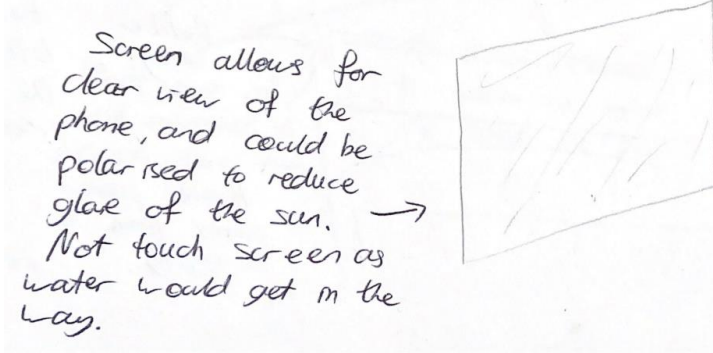 Screen allows for
clear view of the
phone, and could be
polarised to reduce
glare of the sun.
Not touch screen as
water would get in the
way.